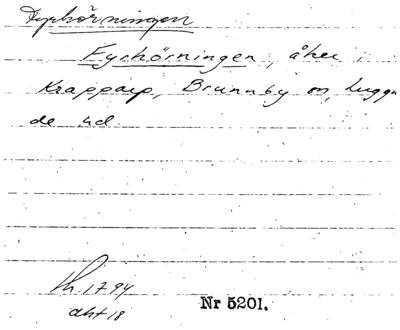 Fyrhörningen
Fyrhörningen, åker i
Krapparp, Brunnby sn, Luggu
de hd.
Lh. 1794
akt 18
Nr 5201.